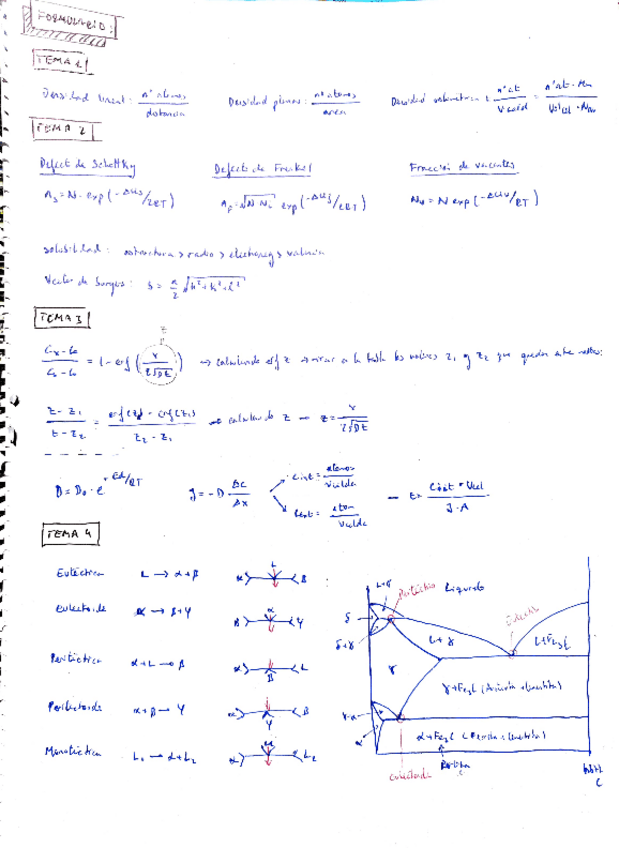 FORMULARIO:
TEMA 1
Densidad lineal: nº atomos / distancia   Densidad planar: nº atomos / area   Densidad volumetrica: nº at / V celda =
TEMA 2
Defecto de Schottky   Defecto de Frenkel   Fracción de vacantes
n_s = N · exp(-ΔH_s/2RT)   n_f = √N N_i exp(-ΔH_f/2RT)   N_v = N exp(-ΔH_v/RT)
solubilidad: estructura > radio > electroneg > valencia
Vector de burgers: b = a/2 √h²+k²+l²
TEMA 3
z
Cx - C0 / Cs - C0 = 1 - erf (x / 2√Dt) → calculando erf z → mirar a la tabla los valores z1 y z2 que quedan entre medias:
z - z1 / z - z2 = → calculando z → z = x / 2√Dt
D = D0 · e^-Ed/RT   J = -D ΔC/Δx   Cint = atomos / Vcelda → t = Vcel / J·A
Cext = atom / Vcelda
TEMA 4
Eutéctica   L → α+β   α L β
Eutectoide   α → β+γ   β α γ
Peritéctica   α+L → β   α β L
Peritectoide   α+β → γ   α γ β
Monotectica   L1 → α+L2   α L2
L+δ   Peritéctico   Líquido   Eutéctico
δ   δ+γ   L+γ   L+Fe3C
γ   γ+Fe3C
γ+α
α   α+Fe3C
eutectoide   Perlita
C